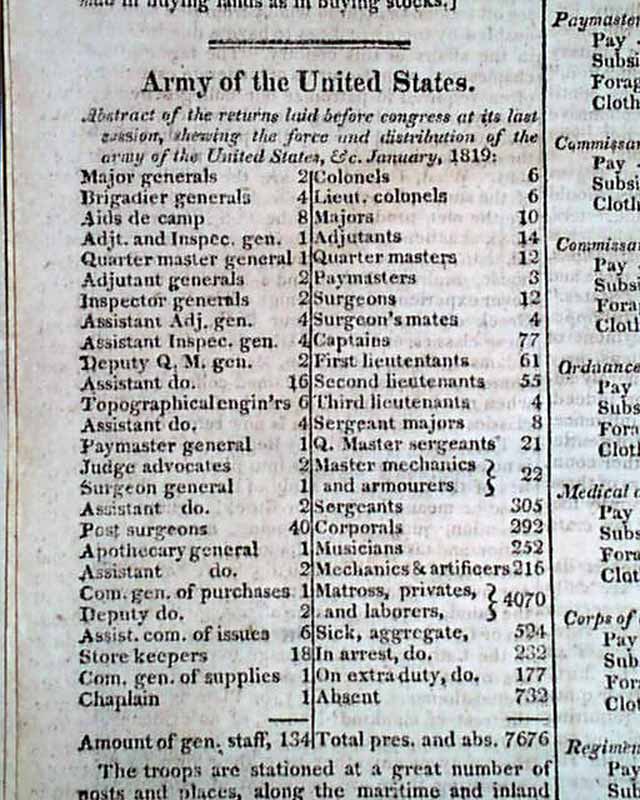 in buying lands as in buying stocks.]
Army of the United States.
Abstract of the returns laid before congress at its last
session, shewing the force and distribution of the
army of the United States, &c. January, 1819:
Major generals 2
Brigadier generals 4
Aids de camp 8
Adjt. and Inspec. gen. 1
Quarter master general 1
Adjutant generals 2
Inspector generals 2
Assistant Adj. gen. 4
Assistant Inspec. gen. 4
Deputy Q. M. gen. 2
Assistant do. 16
Topographical engin'rs 6
Assistant do. 4
Paymaster general 1
Judge advocates 2
Surgeon general 1
Assistant do. 2
Post surgeons 40
Apothecary general 1
Assistant do. 2
Com. gen. of purchases 1
Deputy do. 2
Assist. com. of issues 6
Store keepers 18
Com. gen. of supplies 1
Chaplain 1
Amount of gen. staff, 134
Colonels 6
Lieut. colonels 6
Majors 10
Adjutants 14
Quarter masters 12
Paymasters 3
Surgeons 12
Surgeon's mates 4
Captains 77
First lieutentants 61
Second lieutenants 55
Third lieutenants 4
Sergeant majors 8
Q. Master sergeants 21
Master mechanics
and armourers } 22
Sergeants 305
Corporals 292
Musicians 252
Mechanics & artificers 216
Matross, privates,
and laborers, } 4070
Sick, aggregate, 524
In arrest, do. 232
On extra duty, do. 177
Absent 732
Total pres. and abs. 7676
The troops are stationed at a great number of
posts and places, along the maritime and inland
Paymaster
Pay
Subsi
Forag
Cloth
Commissar
Pay
Subsi
Cloth
Commissar
Pay
Subsi
Fora
Cloth
Ordnance
Pay
Subs
Fora
Cloth
Medical
Pay
Subs
Fora
Clot
Corps of
Pay
Sub
For
Clot
Regimen
Pay
Sub